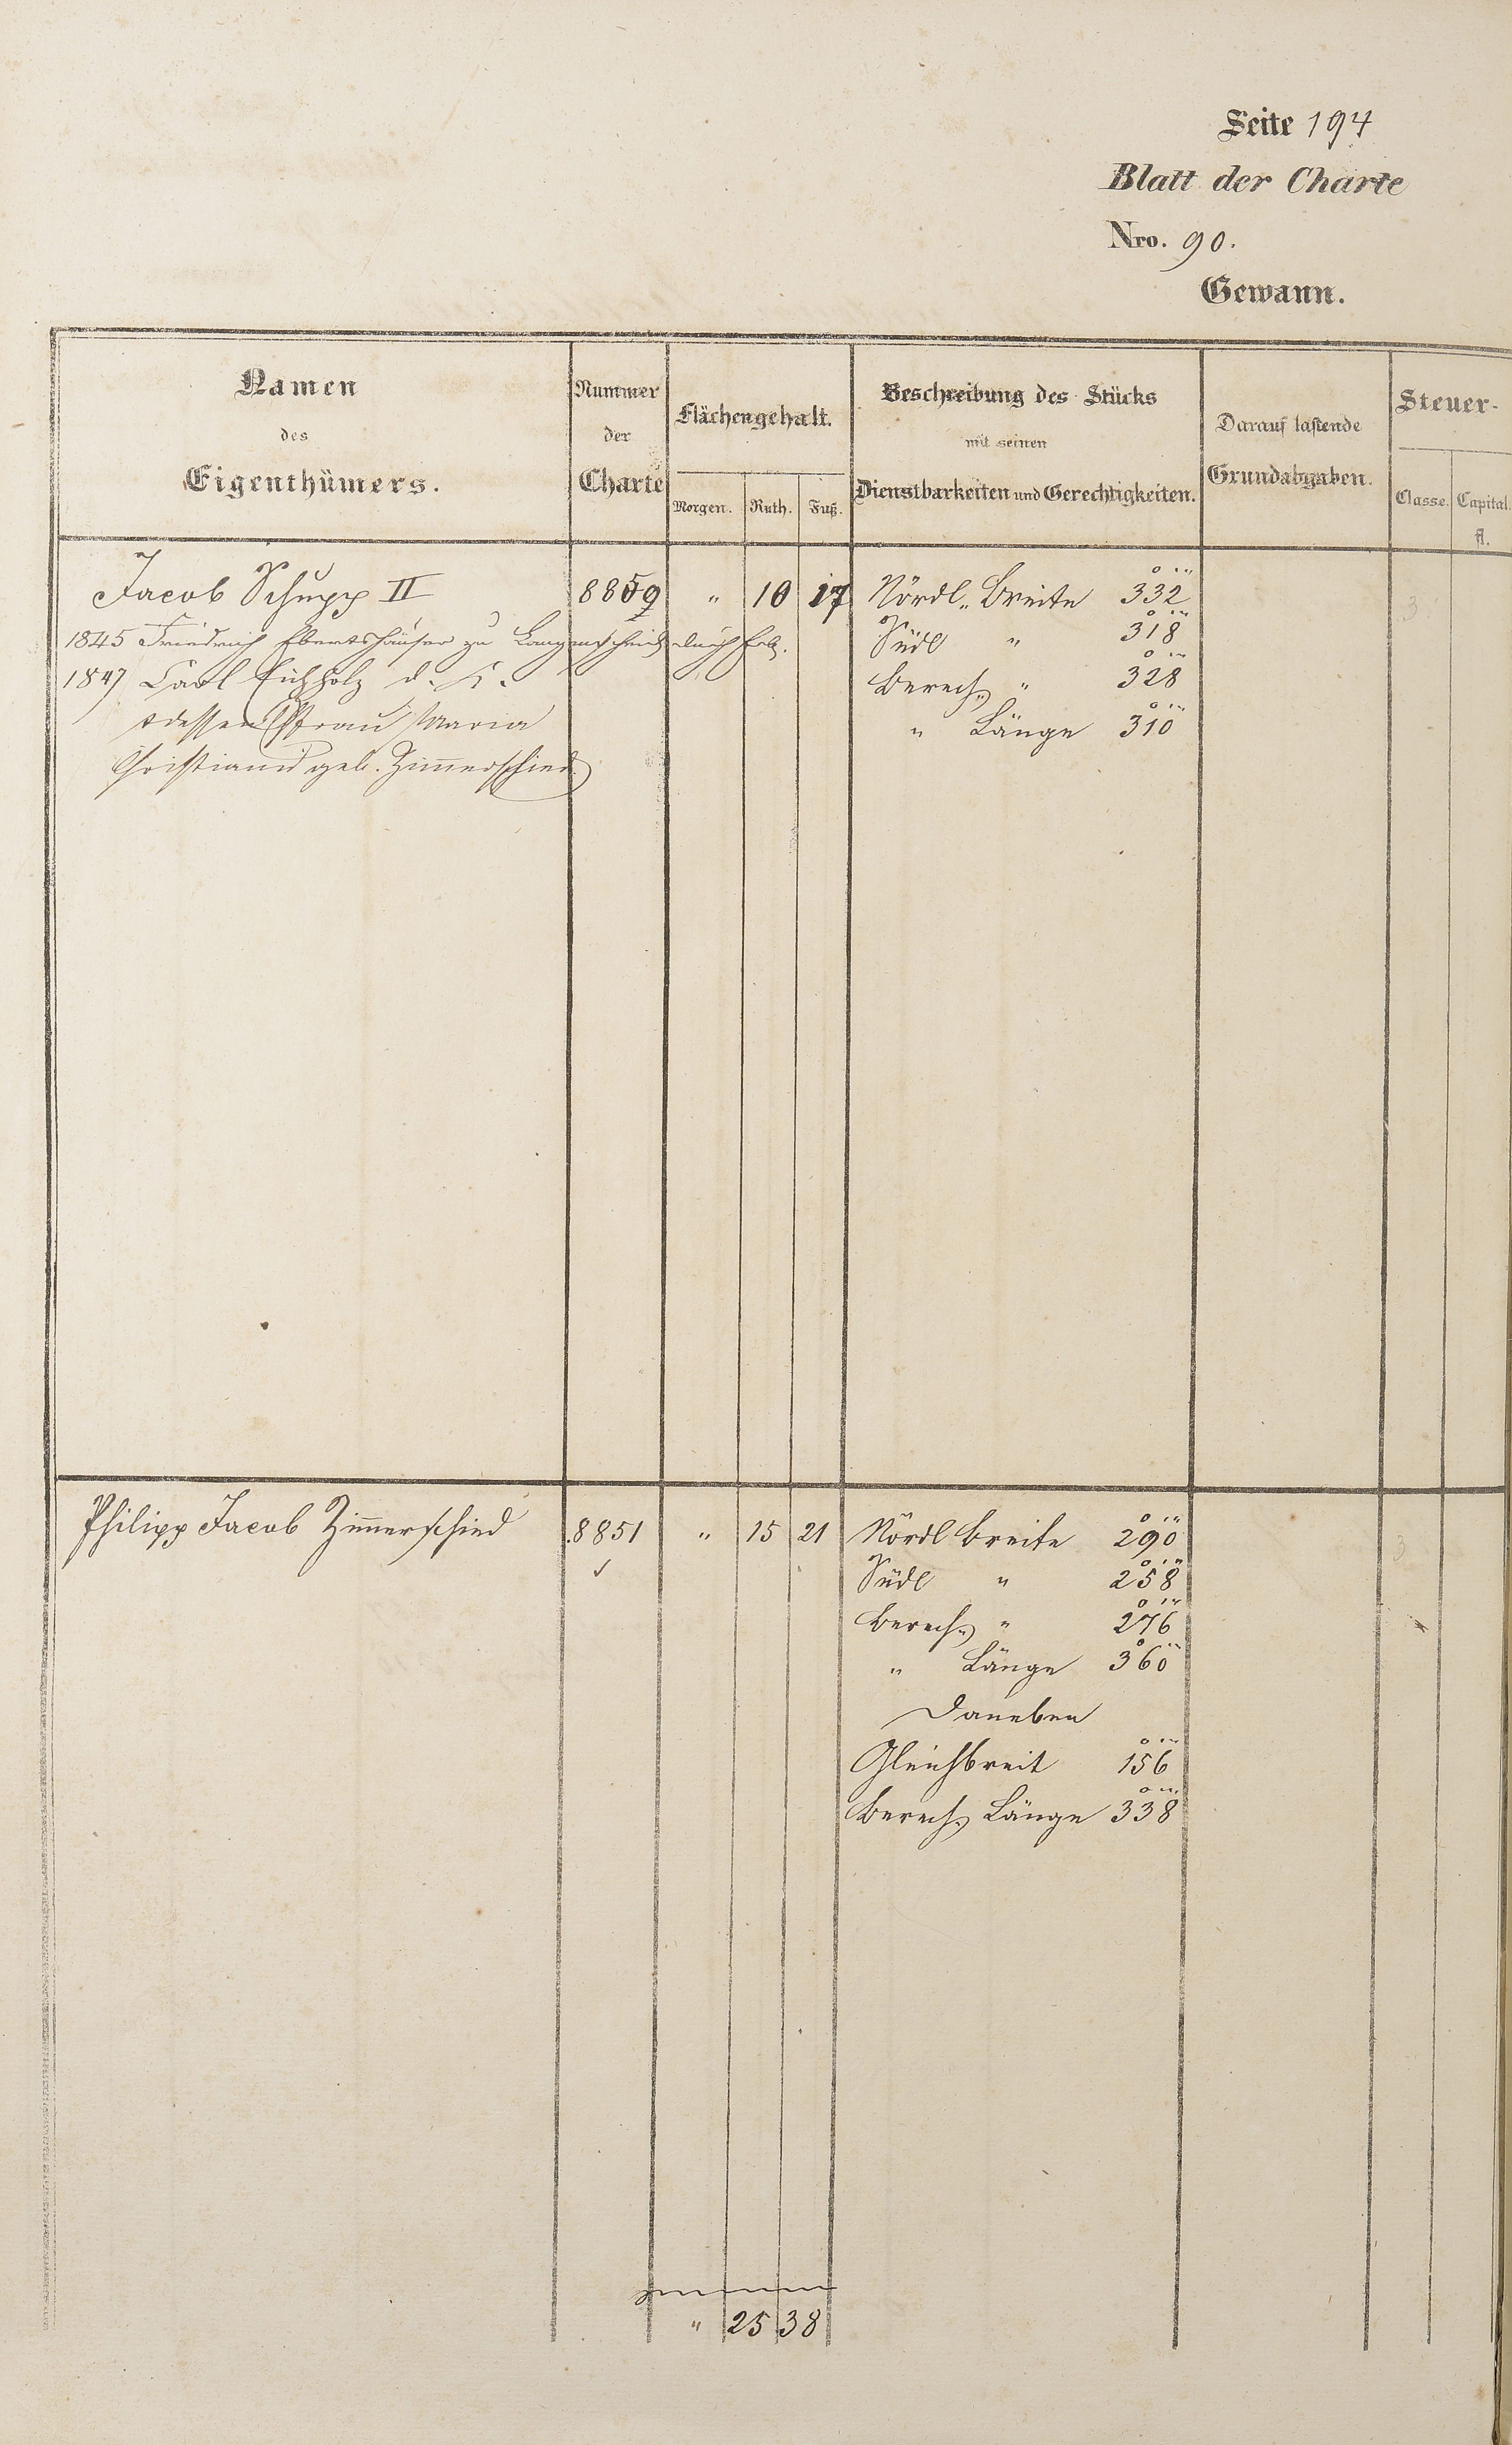 Seite 194
Blatt der Charte
Nro. 90.
Gewann.
Namen des Eigenthümers.
Nummer der Charte
Flächengehalt.
Morgen. Ruth. Fuß.
Beschreibung des Stücks mit seinen Dienstbarkeiten und Gerechtigkeiten.
Darauf lastende Grundabgaben.
Steuer-
Classe. Capital. fl.
Jacob Schupp II 8859 " 10 17 Nördl. Breite 332 3
1845 Friedrich Ebertshäuser zu Langenscheid durch Erb. Südl " 318
1847 Carl Eichholz d. K. Berech. " 328
dessen Frau Maria " Länge 310
Christiane geb. Zim̄erschied
Philipp Jacob Zim̄erschied 8851 " 15 21 Nördl Breite 290 3
Südl " 258
Berech. " 276
" Länge 360
Daneben
Gleichbreit 156
Berech. Länge 338
" 25 38